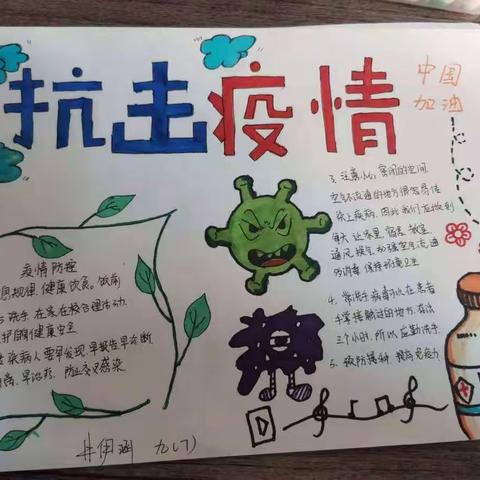 抗击疫情
中国
加油
疫情防控
息规律,健康饮食,饭前
洗手,在家在校合理活动,
护自身健康安全
染病人要早发现,早报告,早诊断
早治疗,防止交叉感染
3、注意小心密闭的空间
空气不流通的地方很容易传
染上疫病,因此我们应做到
每天让家里、宿舍、教室
通风换气,加强空气流通
消毒,保持环境卫生
4、常洗手,病毒可以在患者
手掌接触过的地方,存活
三个小时,所以,应勤洗手
5、预防接种,提高免疫力
九(7)